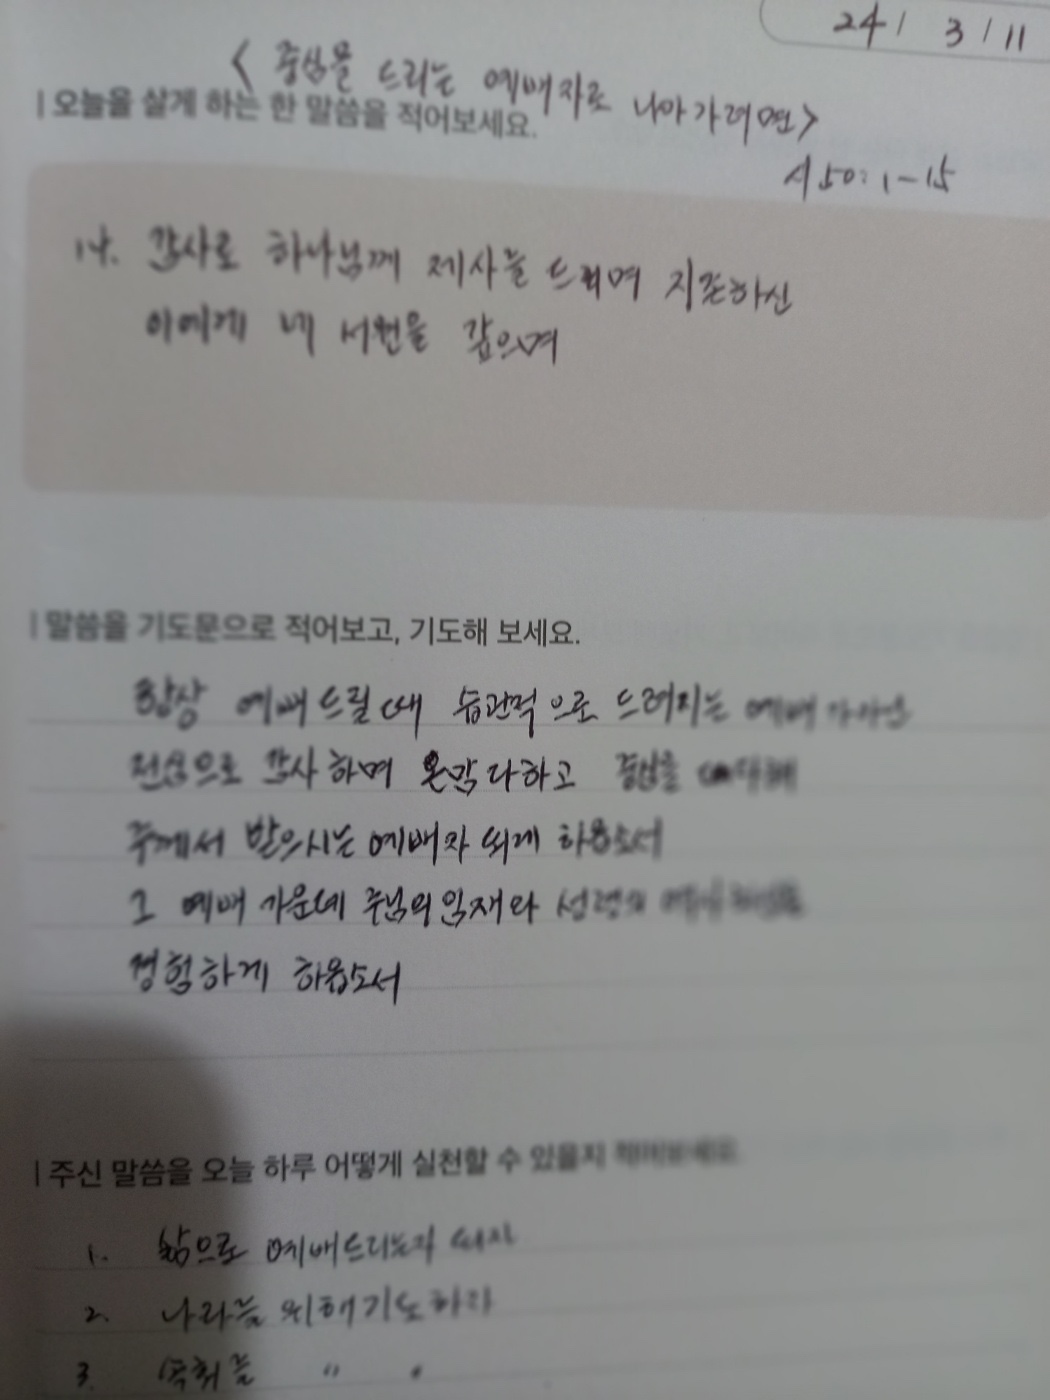 24 / 3 / 11
<중심을 드리는 예배자로 나아가려면>
| 오늘을 살게 하는 한 말씀을 적어보세요.
시 50:1-15
14. 감사로 하나님께 제사를 드리며 지존하신
이에게 네 서원을 갚으며
| 말씀을 기도문으로 적어보고, 기도해 보세요.
항상 예배드릴 때 습관적으로 드려지는 예배가 아닌
전심으로 감사하며 온맘 다하고
주께서 받으시는 예배자 되게 하옵소서
그 예배 가운데 주님의 임재와 성령의
경험하게 하옵소서
| 주신 말씀을 오늘 하루 어떻게 실천할 수 있을지 적어보세요.
1. 삶으로 예배드리는자 되자
2. 나라를 위해 기도하라
3. 〃 〃